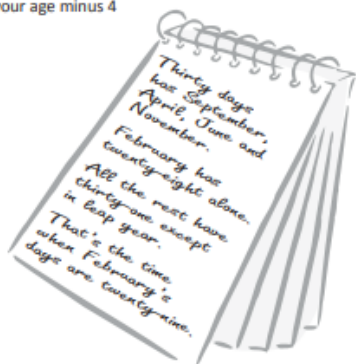 your age minus 4
Thirty days
has September,
April, June and
November.
February has
twenty-eight alone.
All the rest have
thirty-one except
in leap year.
That's the time
when February's
days are twenty-nine.